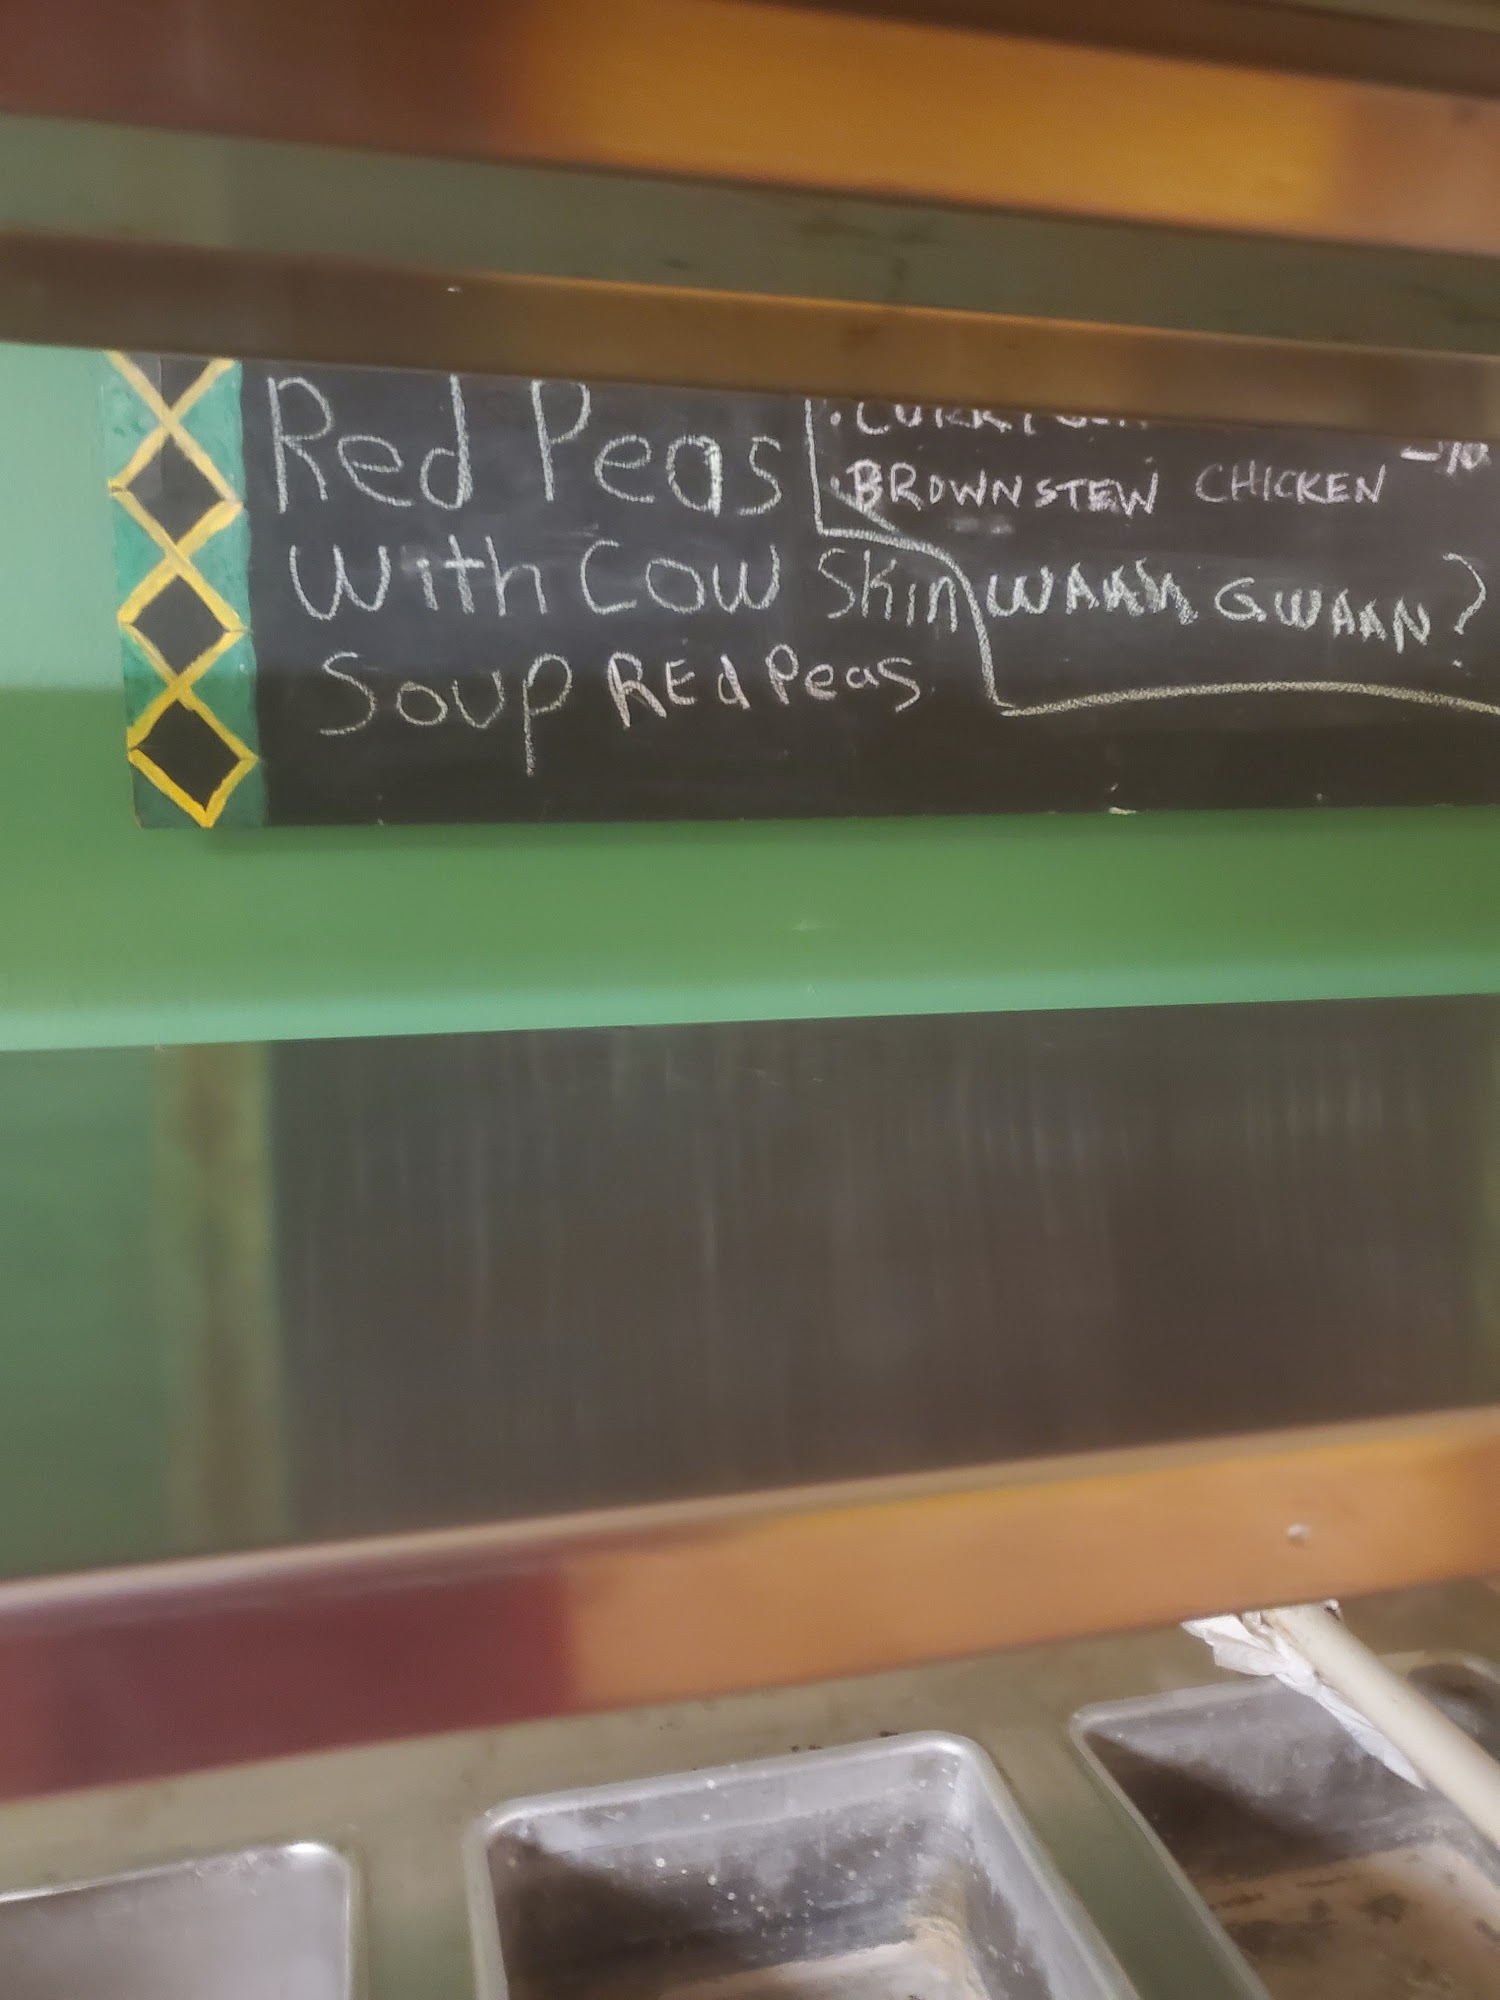 Red Peas
With Cow Skin
Soup REd Peas
BROWN STEW CHICKEN
WAAAN GWAAN?